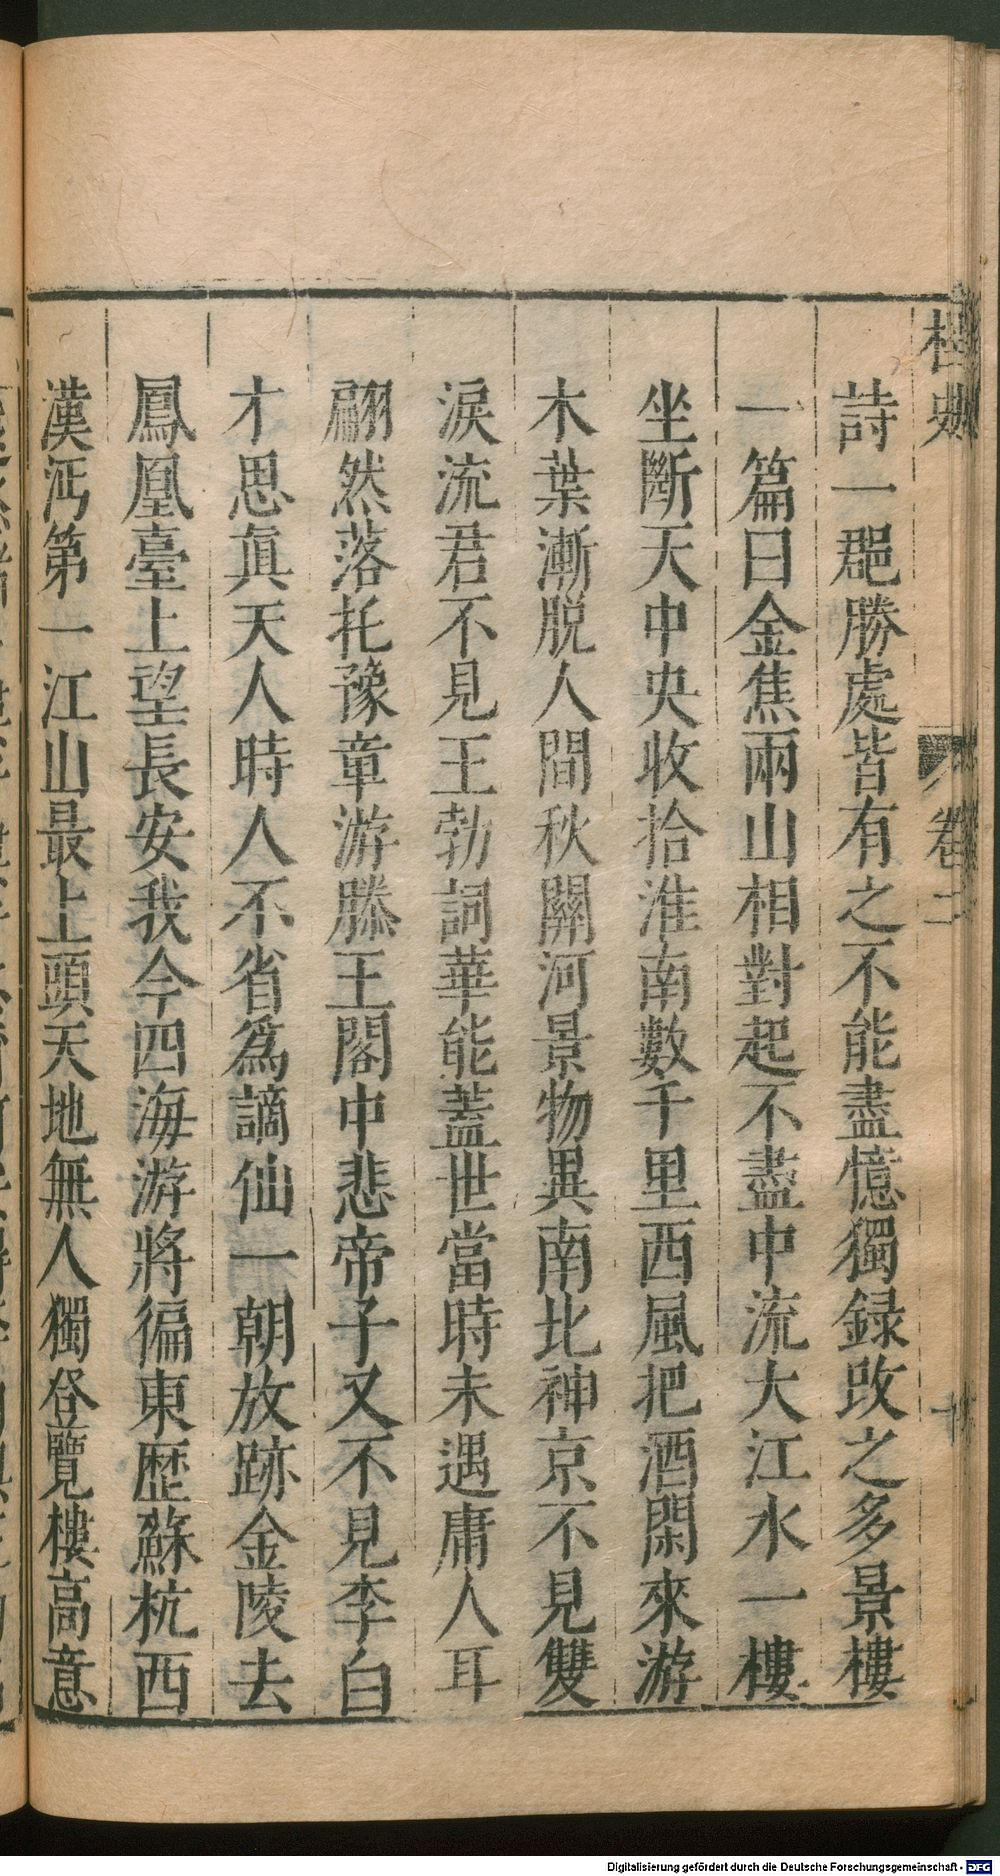 詩一郡勝處皆有之不能盡憶獨録改之多景樓
一篇曰金焦兩山相對起不盡中流大江水一樓
坐斷天中央收拾淮南數千里西風把酒閑來游
木葉漸脱人間秋關河景物異南北神京不見雙
淚流君不見王勃詞華能蓋世當時未遇庸人耳
翩然落托豫章游滕王閣中悲帝子又不見李白
才思真天人時人不省爲謫仙一朝放跡金陵去
鳳凰臺上望長安我今四海游將徧東歷蘇杭西
漢沔第一江山最上頭天地無人獨登覽樓高意
卷二
Digitalisierung gefördert durch die Deutsche Forschungsgemeinschaft - DFG